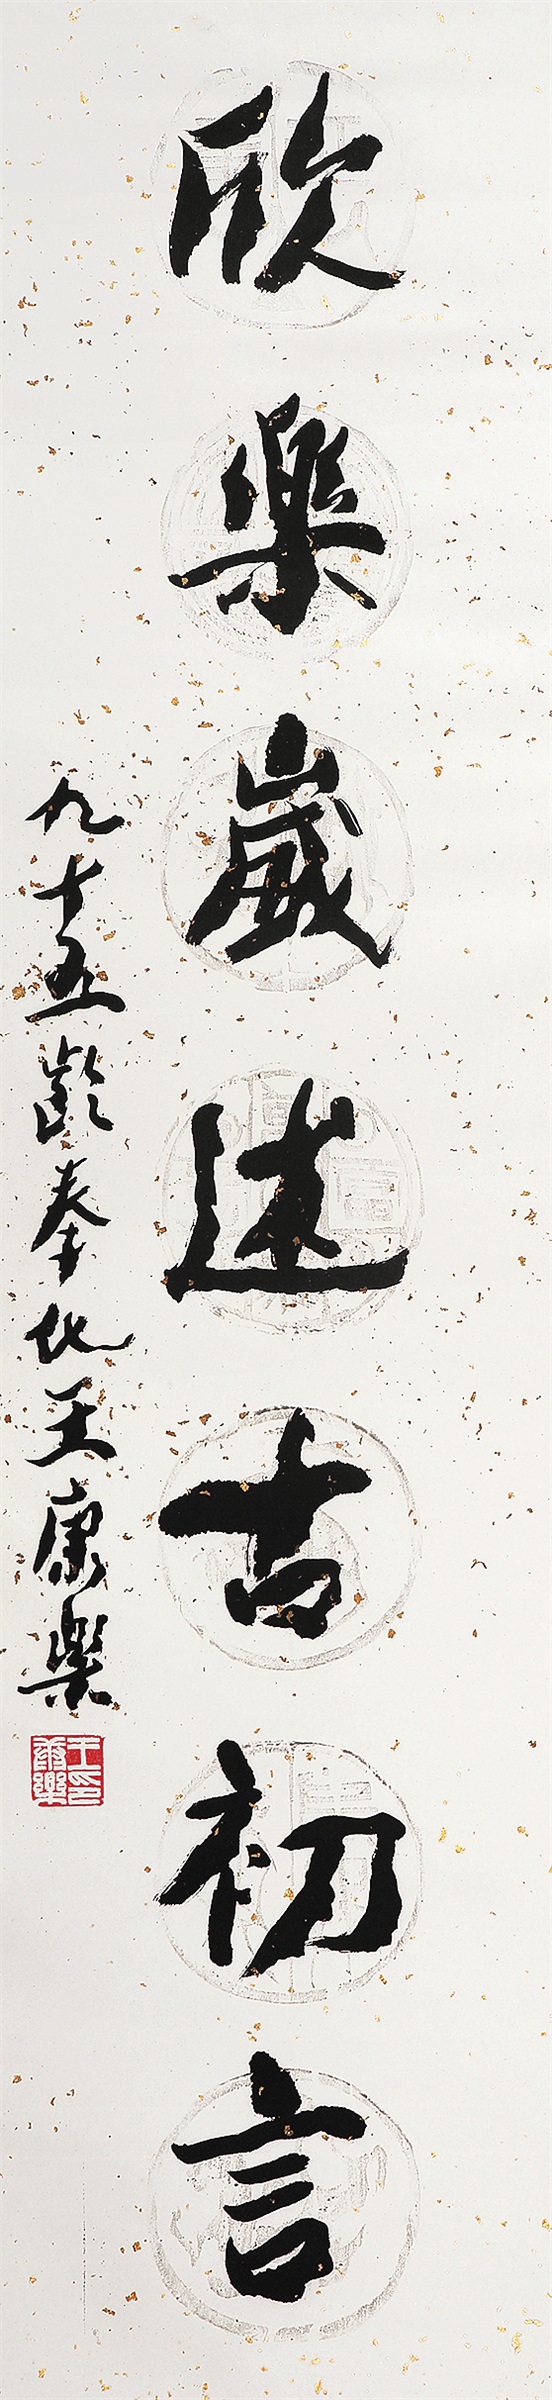 欣樂歲述古初言
九十五齡奉化王康樂
王康樂印